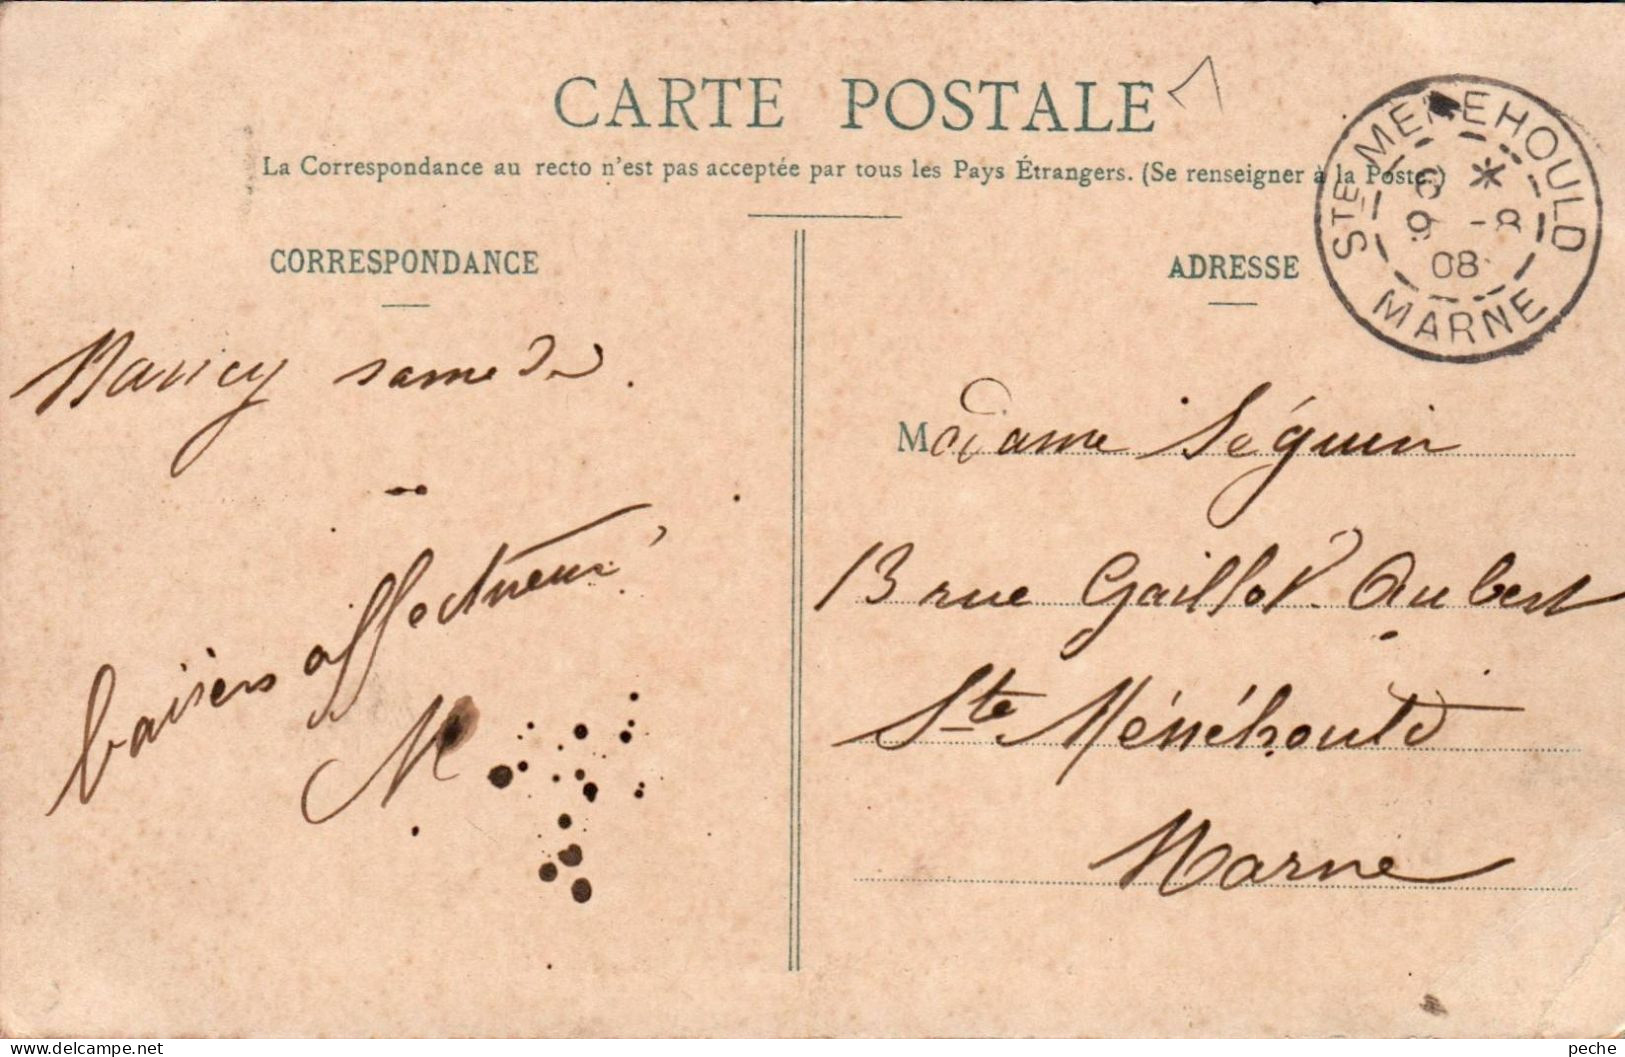 CARTE POSTALE
La Correspondance au recto n'est pas acceptée par tous les Pays Étrangers. (Se renseigner à la Poste.)
STE MENEHOULD
* 
-8
08
MARNE
CORRESPONDANCE
Nancy samedi.
baisers affectueux
M
ADRESSE
Madame Séguin
13 rue Gaillot Aubert
Ste Ménéhould
Marne
peche
Delcampe.net